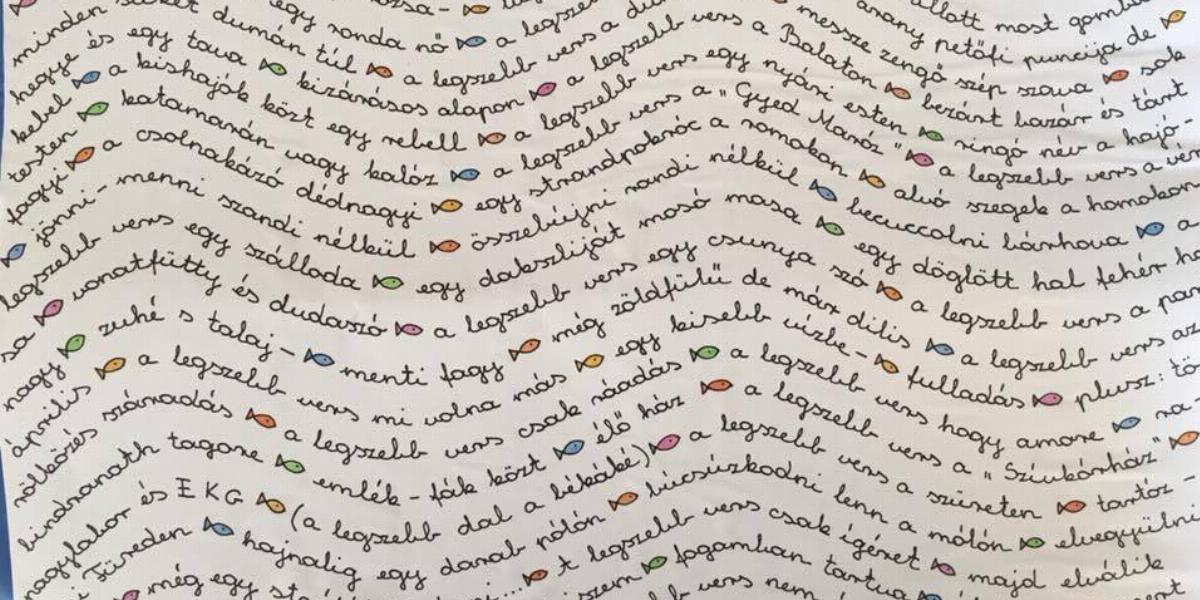 állott most
egy ronda nő a arany petőfi puncija de
minden dumán túl a legszebb vers a messze zengő szép szava sok
hegye és egy tava kizárásos alapon a legszebb vers a Balaton bezárt bazár és tárt
kebel a kishajók közt egy rebell a legszebb vers egy nyári esten ringó név a hajó-
testen katamarán vagy kalóz a legszebb vers a „Gyed Maróz” a legszebb vers a
fagyi a csolnakázó dédnagyi egy strandpokróc a romokon alvó szegek a homokon
jönni-menni szandi nélkül összebújni randi nélkül becuccolni bárhova a
legszebb vers egy szállada egy dakszliját mosó masa egy döglött hal fehér ha
sa vonatfütty és dudaszó a legszebb vers egy csunya szó a legszebb vers a par
nagy zuhé s talaj- menti fagy még zöldfülű de már dilis a legszebb vers az
április a legszebb vers mi volna más egy kisebb vízbe- fulladás plusz: tö
rölközés száradás a legszebb vers csak ráadás a legszebb vers hogy amore ra-
bindranath tagore emlék-fák közt élő ház a legszebb vers a „Szívkórház”
nagylabor és EKG (a legszebb dal a békáké) a legszebb vers a szüreten tartóz-
i Füreden hajnalig egy darab rólón búcsúzkodni lenn a mólón elvegyülni
még egy t legszebb vers csak igéret majd elválik
fogamban tartva
vers